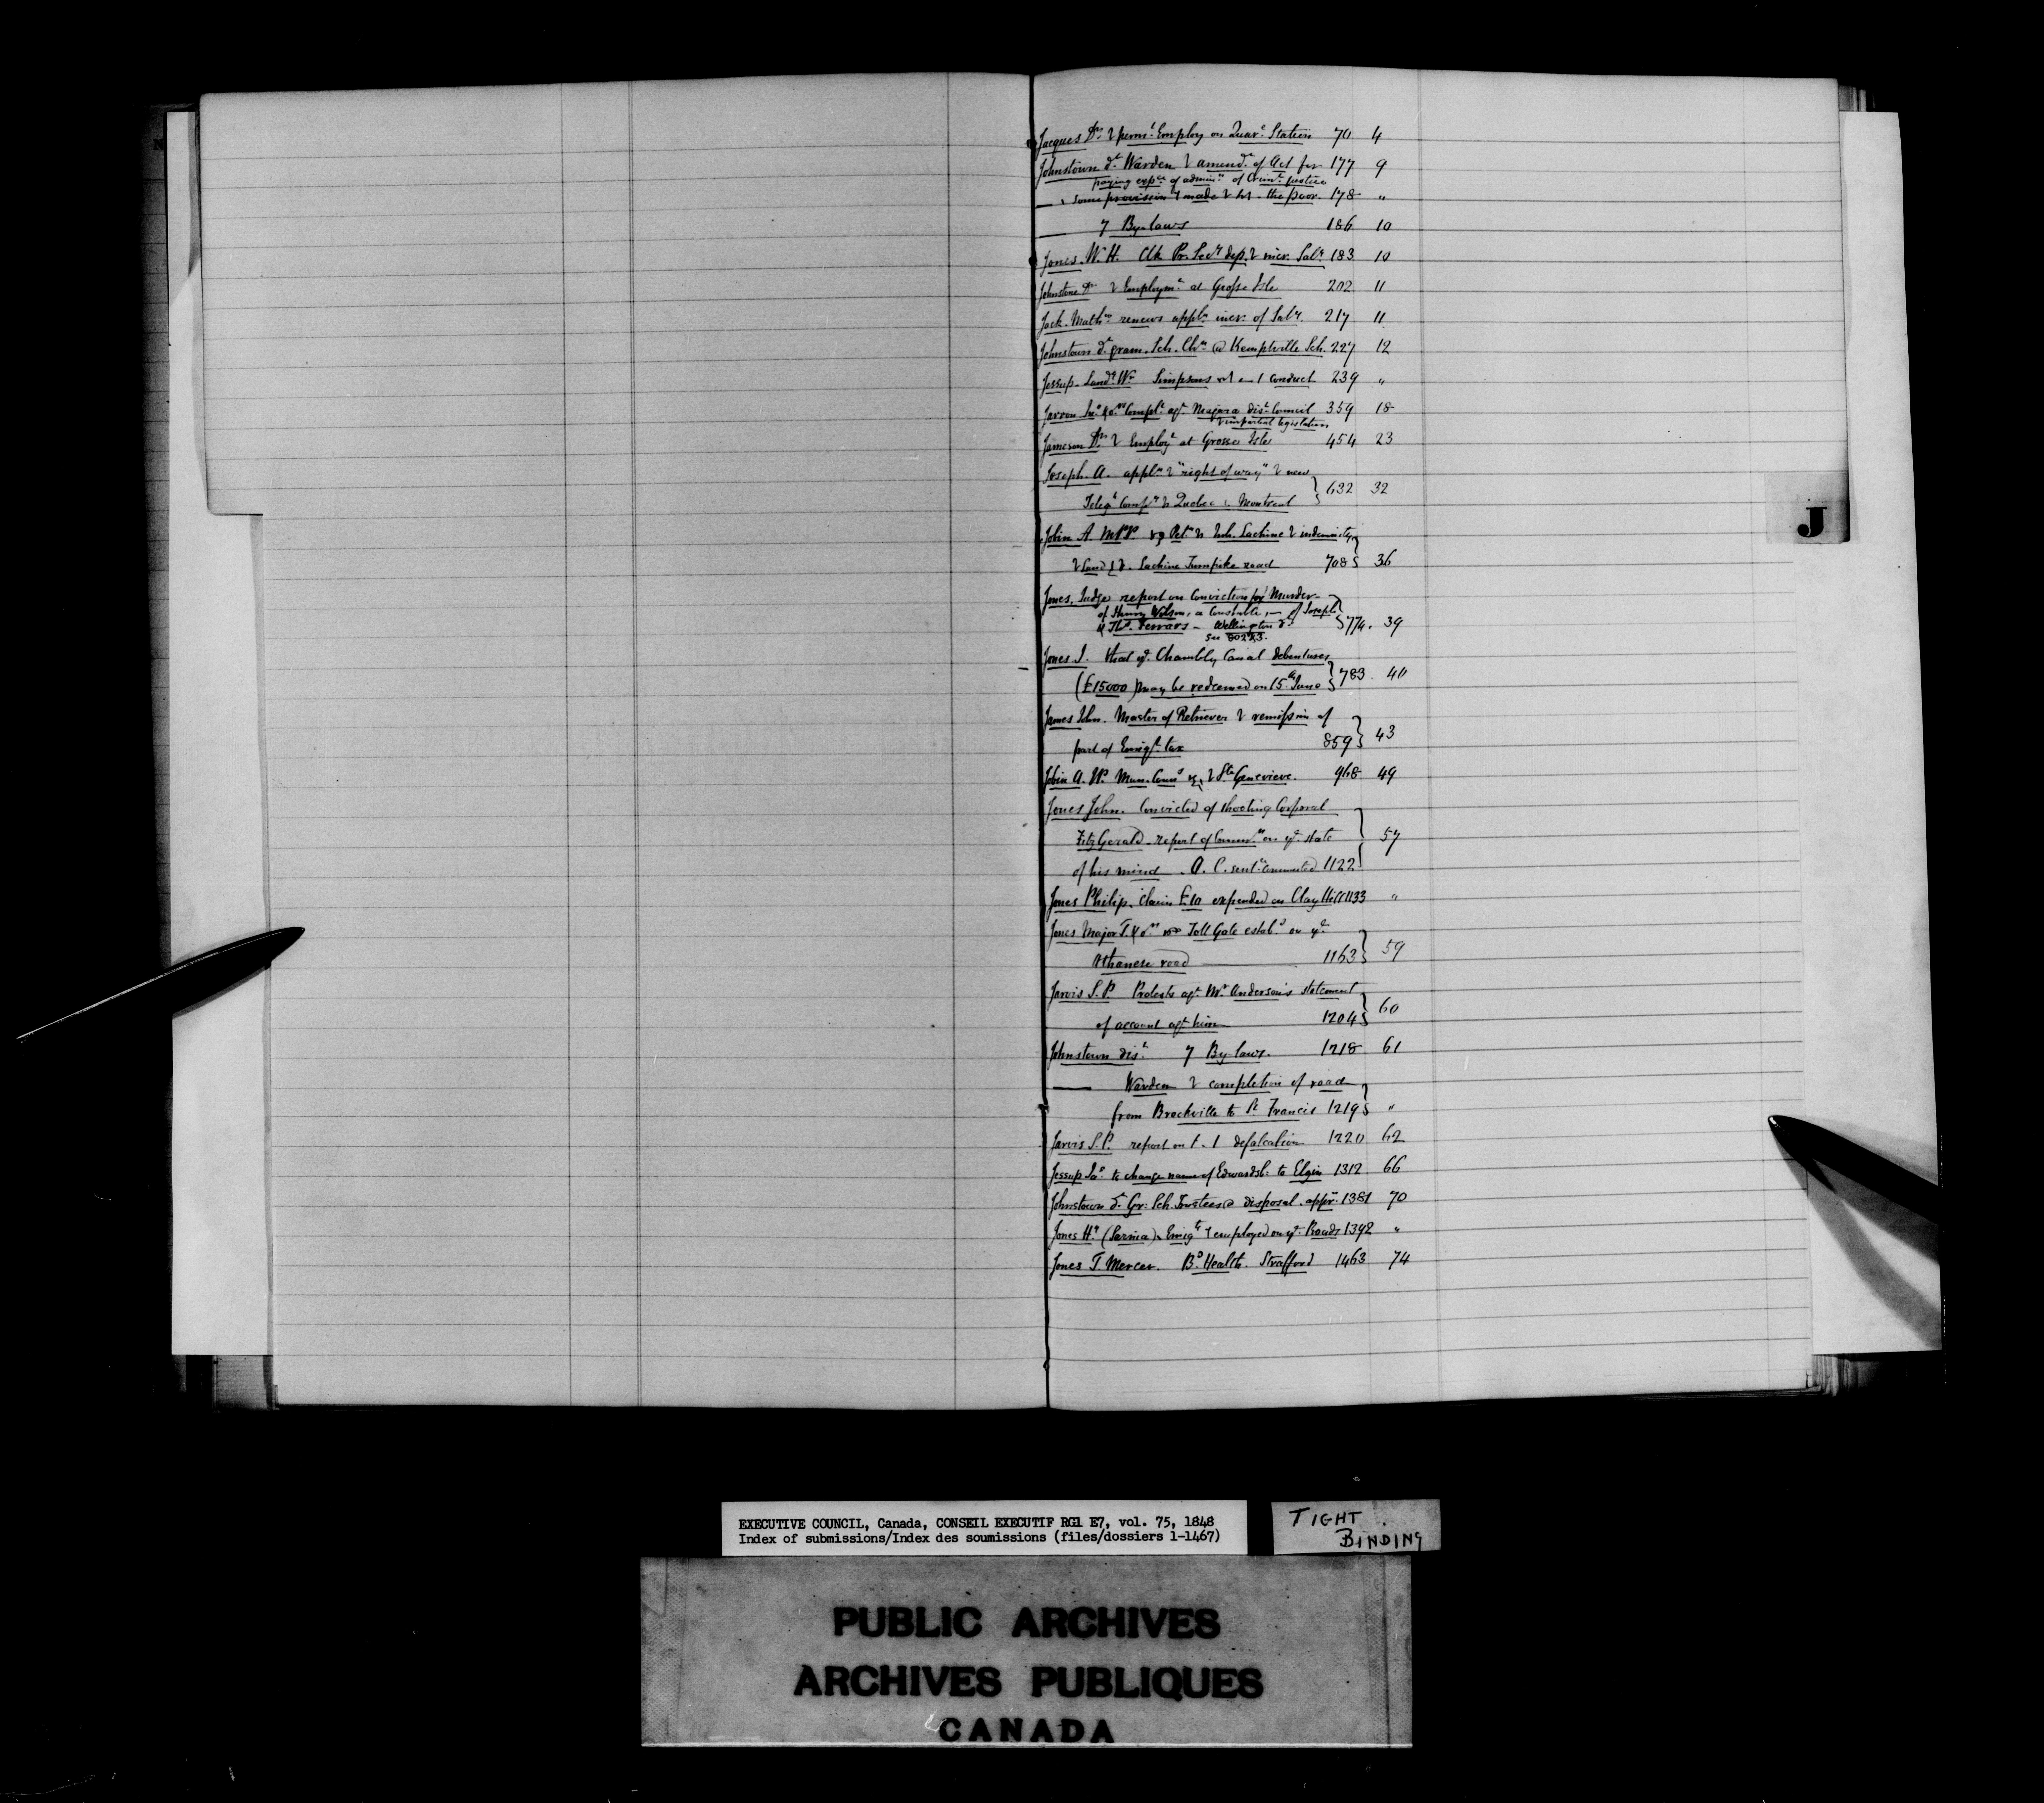 Jacques Dr. & perm.t Employ on Quar.e Station 70 4
Johnstown d.t Warden & amend.t of Act for 177 9
paying exp.s of admin.n of Crim.l justice
some provision made the poor. 178 "
7 By-laws 186 10
Jones W. H. Clk Pr. Sec.y dep. & incr. Sal.y 183 10
Johnstone Dr. & Employm.t at Grosse Isle 202 11
Jack Math.w renews appl.n incr. of Sal.y 217 11
Johnstown d.t gram. Sch. Ch.n @ Kemptville Sch. 227 12
Jessup Simpsons conduct 239 "
Compl.t ag.t Niagara dis.t Council 359 18
& impartial legislation
Jameson Dr. & Employ.t at Grosse Isle 454 23
Joseph A. appl.n & "right of way" & new
Teleg.h Comp.y Quebec Montreal 632 32
Jobin A. MPP. Pet.n Inh. Lachine & indemnity
& Land Lachine Turnpike road 708 36
Jones, Judge report on Conviction for Murder
of Henry Wilson, a Constable, of Joseph
& Tho.s Ferrars - Wellington d.t 774. 39
see
Jones J. that y.e Chambly Canal debentures
(£15000) may be redeemed on 15.th June 783. 40
James John. Master of Retriever & remission of
part of Emig.t tax 859 43
Jobin A. Mun. Coun.l & Ste Genevieve. 968 49
Jones John. Convicted of shooting Corporal
FitzGerald - report of Comm.rs on y.e state
of his mind - A. C. sent.ce commuted 1122 57
Jones Philip, claim £10 expended on Clay Hill 1133 "
Jones Major T. & o.rs Toll Gate estab.d on y.e
road 1163 59
Jarvis S. P. Protests ag.t Mr. Anderson's statement
of account ag.t him 1204 60
Johnstown dis.t 7 By laws. 1218 61
Warden & completion of road
from Brockville to St. Francis 1219 "
Jarvis S. P. report on defalcation 1220 62
Jessup Ja.s to change name of Edwardsb. to Elgin 1312 66
Johnstown d.t Gr: Sch. Trustees @ disposal appr.n 1381 70
Jones H.y (Sarnia) Emig.ts employed on y.e Roads 1392 "
Jones T. Mercer. B.d Health. Stratford 1463 74
J
EXECUTIVE COUNCIL, Canada, CONSEIL EXECUTIF RG1 E7, vol. 75, 1848
Index of submissions/Index des soumissions (files/dossiers 1-1467)
TIGHT
BINDING
PUBLIC ARCHIVES
ARCHIVES PUBLIQUES
CANADA